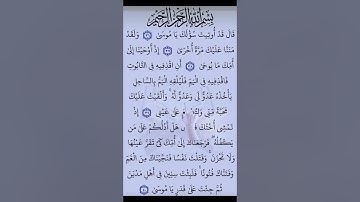 بِسْمِ اللَّهِ الرَّحْمَٰنِ الرَّحِيمِ
قَالَ قَدْ أُوتِيتَ سُؤْلَكَ يَا مُوسَىٰ وَلَقَدْ
مَنَنَّا عَلَيْكَ مَرَّةً أُخْرَىٰ إِذْ أَوْحَيْنَا إِلَىٰ
أُمِّكَ مَا يُوحَىٰ أَنِ اقْذِفِيهِ فِي التَّابُوتِ
فَاقْذِفِيهِ فِي الْيَمِّ فَلْيُلْقِهِ الْيَمُّ بِالسَّاحِلِ
يَأْخُذْهُ عَدُوٌّ لِي وَعَدُوٌّ لَهُ وَأَلْقَيْتُ عَلَيْكَ
مَحَبَّةً مِنِّي عَلَىٰ عَيْنِي إِذْ
تَمْشِي أُخْتُكَ هَلْ أَدُلُّكُمْ عَلَىٰ مَنْ
يَكْفُلُهُ فَرَجَعْنَاكَ إِلَىٰ أُمِّكَ كَيْ تَقَرَّ عَيْنُهَا
وَلَا تَحْزَنَ وَقَتَلْتَ نَفْسًا فَنَجَّيْنَاكَ مِنَ الْغَمِّ
وَفَتَنَّاكَ فُتُونًا فَلَبِثْتَ سِنِينَ فِي أَهْلِ مَدْيَنَ
ثُمَّ جِئْتَ عَلَىٰ قَدَرٍ يَا مُوسَىٰ